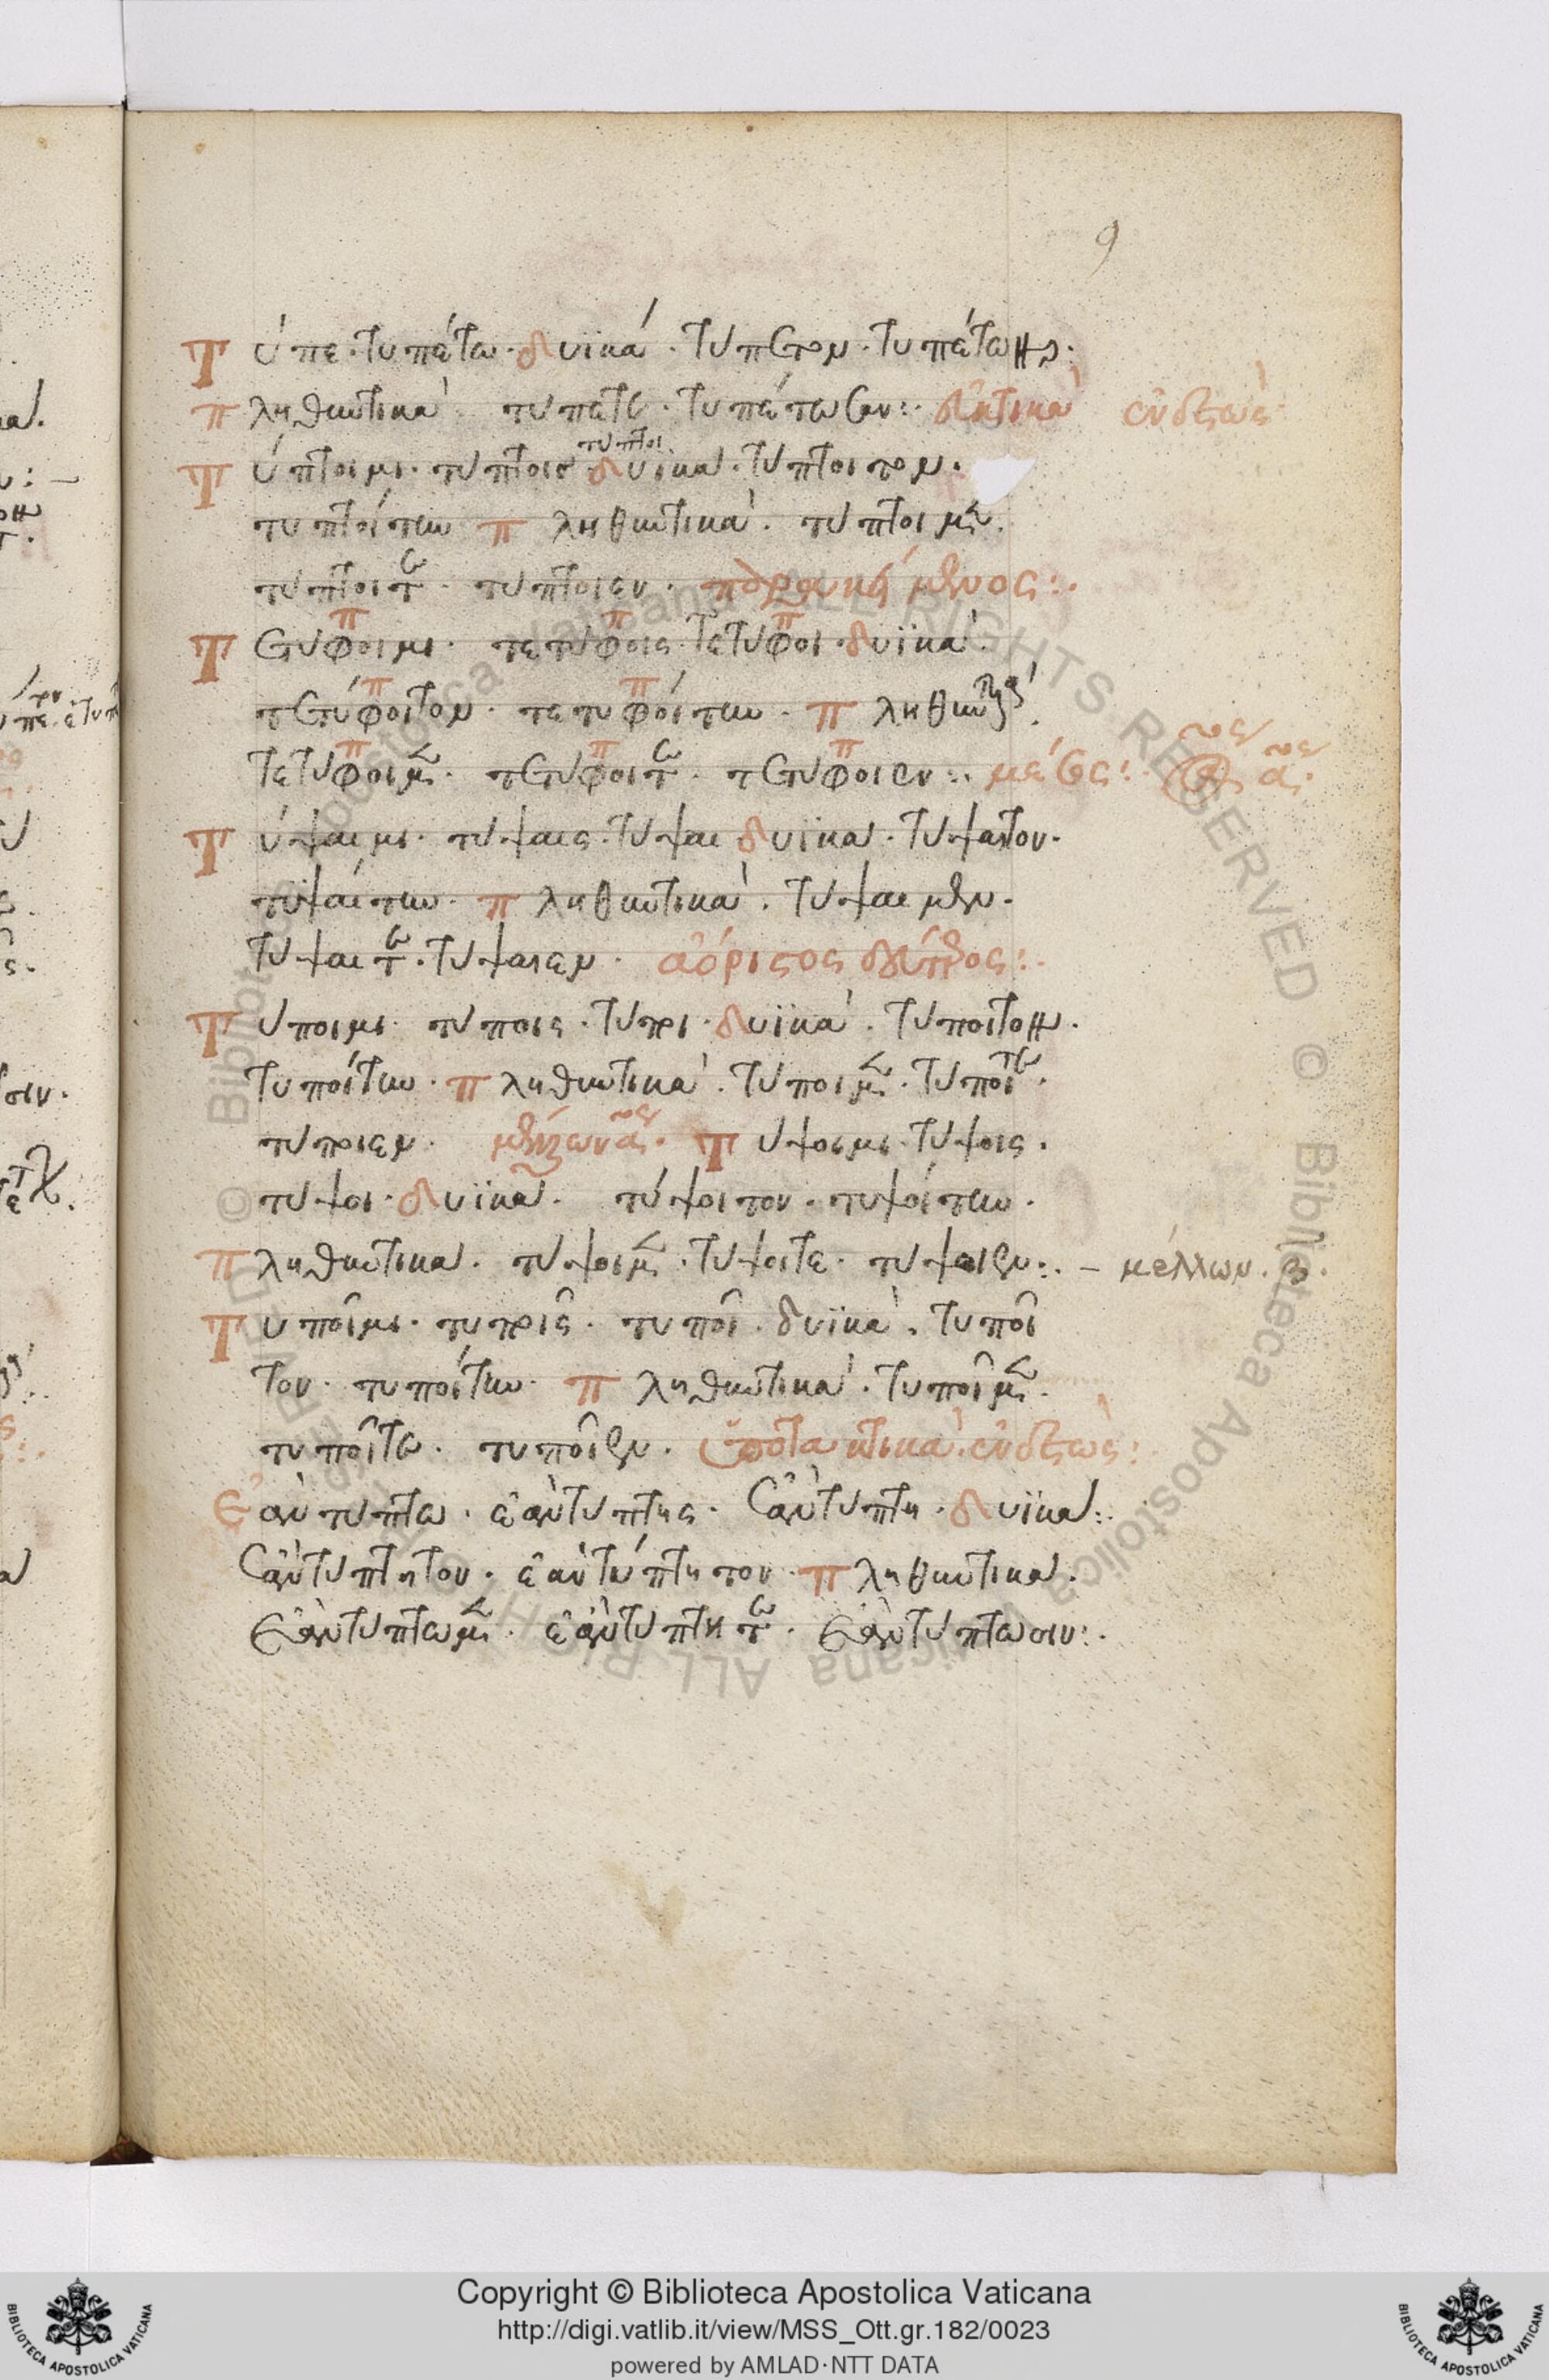 9
Τύπε· τυπέτω· δυϊκά· τύπετον· τυπέτων·
πληθυντικὰ· τύπετε· τυπέτωσαν:· εὐκτικὰ ἐνεστὼς·
Τύπτοιμι· τύπτοις· τύπτοι· δυϊκὰ· τύπτοιτον·
τυπτοίτην πληθυντικὰ· τύπτοιμεν·
τύπτοιτε· τύπτοιεν· παρακείμενος:·
Τετύφοιμι· τετύφοις· τετύφοι· δυϊκὰ·
τετύφοιτον· τετυφοίτην· πληθυντικὰ·
τετύφοιμεν· τετύφοιτε· τετύφοιεν:· μέσος:·
Τύψαιμι· τύψαις· τύψαι δυϊκὰ· τύψαιτον·
τυψαίτην· πληθυντικὰ· τύψαιμεν·
τύψαιτε· τύψαιεν· ἀόριστος δεύτερος:·
Τύποιμι· τύποις· τύποι· δυϊκὰ· τύποιτον·
τυποίτην· πληθυντικὰ· τύποιμεν· τύποιτε·
τύποιεν· Τύψοιμι· τύψοις·
τύψοι· δυϊκὰ· τύψοιτον· τυψοίτην·
πληθυντικὰ· τύψοιμεν· τύψοιτε· τύψοιεν:· – μέλλων· β·
Τυποῖμι· τυποῖς· τυποῖ· δυϊκὰ· τυποῖ
τον· τυποίτην· πληθυντικὰ· τυποῖμεν·
τυποῖτε· τυποῖεν· ὑποτακτικὰ· ἐνεστὼς:
Ἐὰν τύπτω· ἐὰν τύπτης· ἐὰν τύπτη· δυϊκὰ:·
ἐὰν τύπτητον· ἐὰν τύπτητον· πληθυντικὰ·
ἐὰν τύπτωμεν· ἐὰν τύπτητε· ἐὰν τύπτωσιν:·
Copyright © Biblioteca Apostolica Vaticana
http://digi.vatlib.it/view/MSS_Ott.gr.182/0023
powered by AMLAD·NTT DATA